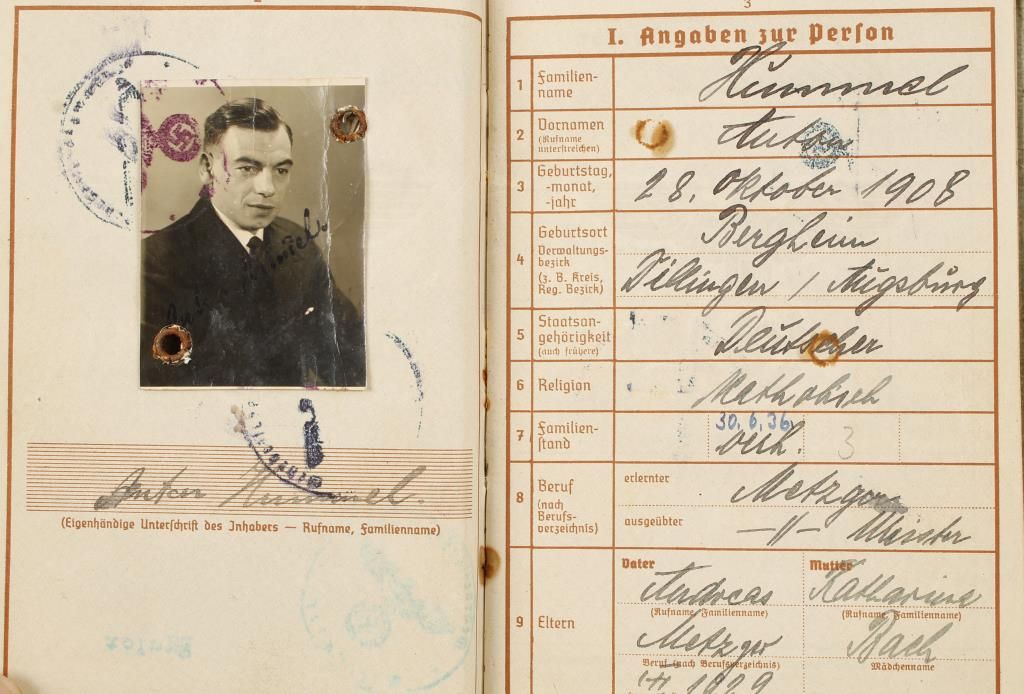 Anton Hummel.
(Eigenhändige Unterschrift des Inhabers — Rufname, Familienname)
3
I. Angaben zur Person
1 Familien-
name
Hummel
2 Vornamen
(Rufname
unterstreichen)
Anton
3 Geburtstag,
-monat,
-jahr
28. Oktober 1908
4 Geburtsort
Verwaltungs-
bezirk
(z. B. Kreis,
Reg. Bezirk)
Bergheim
Dillingen / Augsburg
5 Staatsan-
gehörigkeit
(auch frühere)
Deutscher
6 Religion
Katholisch
7 Familien-
stand
30. 6. 36.
verh.
3
8 Beruf
(nach
Berufs-
verzeichnis)
erlernter
Metzger
ausgeübter
—〃— Meister
9 Eltern
Vater
Andreas
(Rufname, Familienname)
Metzger
Beruf (nach Berufsverzeichnis)
1929
Mutter
Katharina
(Rufname, Familienname)
Bach
Mädchenname